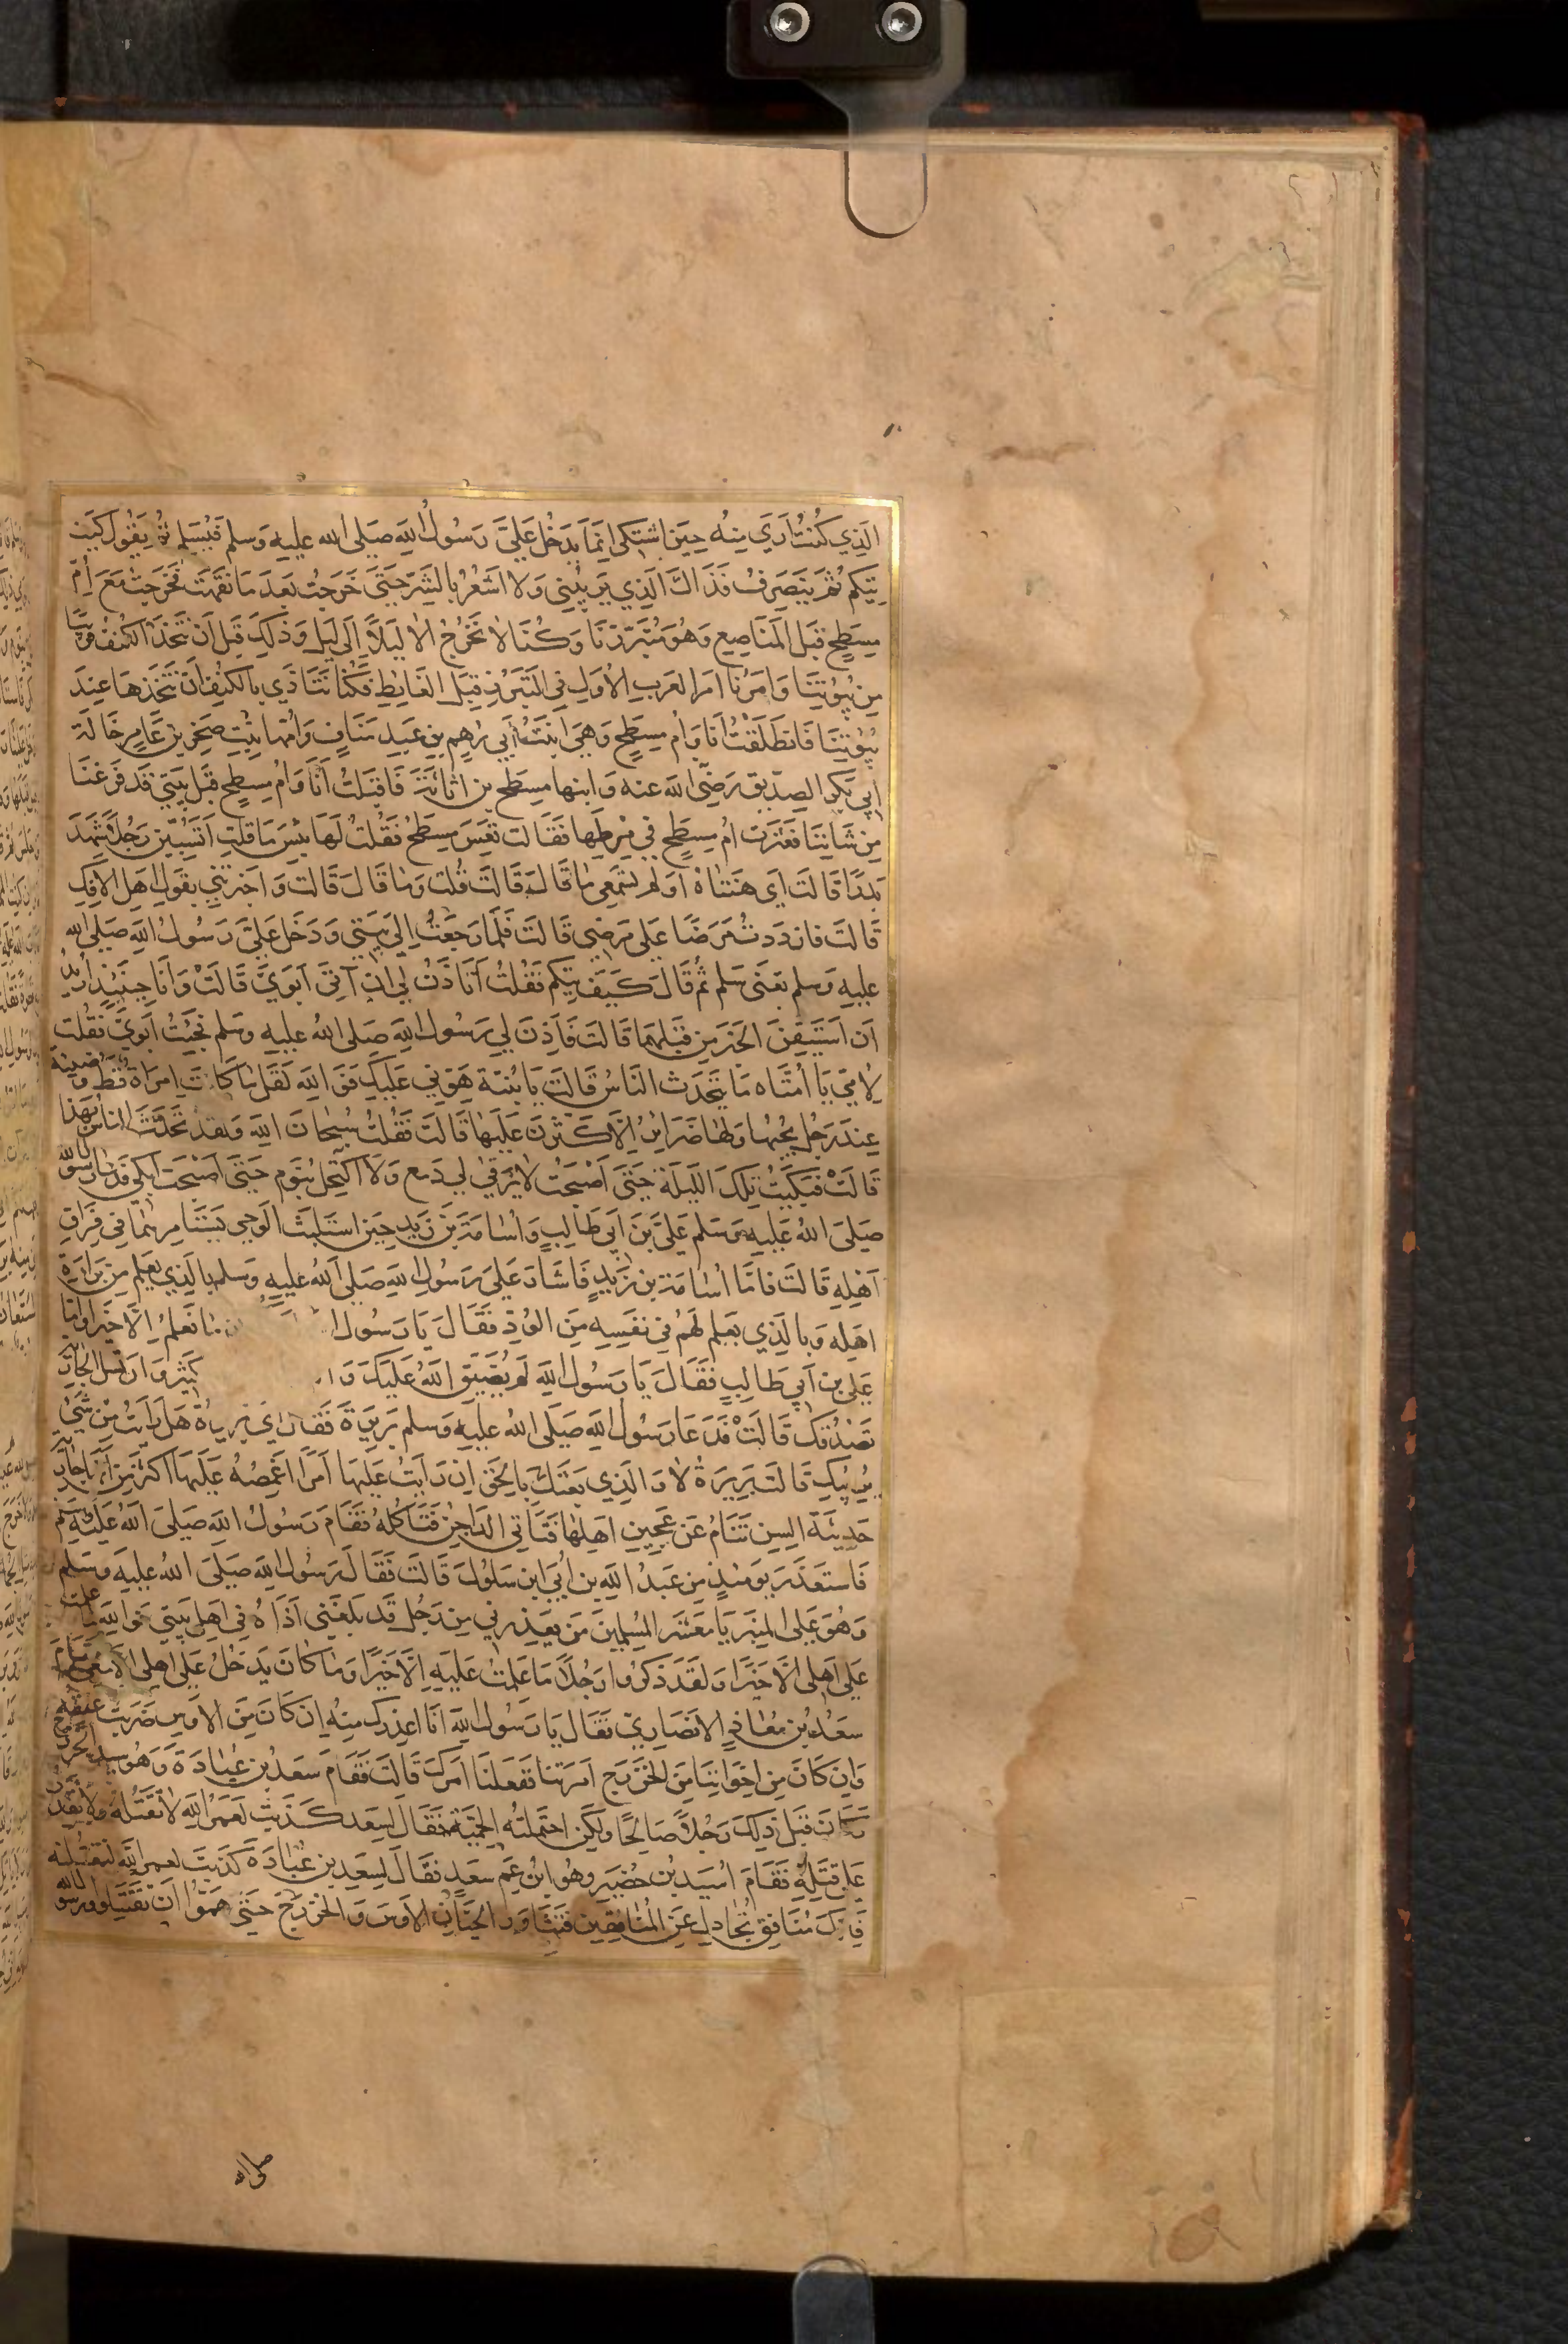 الَّذِي كُنْتُ أَرَي مِنْه حِينَ اشْتَكى انَّمَا يَدْخُل عَلَيَّ رَسُولُ اللهِ صَلى الله عليه وَسلم فَيُسَلم ثُم يَقُول كَيْفَ
تِيكُم ثُمَّ يَنْصَرِفُ فَذَاكَ الَّذِي يَريبُنِي وَلا اشْعُرُ بالشَّرِّ حَتَّى خَرَجْتُ بَعدَ مَا نَقَهْتُ فَخَرجَتْ مَعَ أمّ
مِسْطَحٍ قبَل المَنَاصِعِ وَهُوَ مُتَبَرَّزُنَا وَكُنَّا لا نَخْرُجُ الا لَيْلاً إلَى لَيْل وَذلكَ قَبْل انْ نَتَّخذَ الكُنُفَ قريبًا
مِن بُيُوتِنَا وَامْرُنَا امْرُ العَرَبِ الأوَلِ فِي التَبَرُّزِ قِبَلَ الغَايطِ فكُنَّا نَتَأذَّي بالكُنفِ أنْ نَتَّخذهَا عِندَ
بُيُوتِنَا فَانطَلَقْتُ أنَا وَامُّ مِسْطَحٍ وَهيَ ابْنَةُ أبِي رُهِمِ بنِ عَبدِ مَنَافٍ وَامُّها بِنْتِ صَخرِ بن عَامِر خَالَة
ابِي بَكْرٍ الصِدّيق رَضي الله عنه وَابنها مِسْطَح بن اثَاثَةَ فَاقبَلتُ أنَا وَامُّ مِسطحٍ قبَل بَيتِي قَد فَرَغنَا
مِن شَانِنَا فَعَثَرَت امُّ مِسْطَحٍ فِي مِرطِها فَقَالت تَعِسَ مِسْطَحٌ فَقُلْتُ لَهَا بِئْسَ مَا قلتِ أتَسُبِّينَ رَجُلاً شَهِدَ
بَدرًا قَالَت أي هَنتَاهُ أو لَم تسْمَعِي مَا قَالَ قَالَتْ قُلتُ وَمَا قَالَ قَالَت وَاخبَرتنِي بقَولِ اهَل الإفكِ
قَالَت فازدَدتُ مَرَضًا عَلى مَرضِي قَالَت فَلَمّا رَجَعْتُ إلَى بَيْتِي وَدَخَل عَليَّ رَسُولُ اللهِ صَلى الله
عليه وَسلم تعَنِي سَلم ثُم قَالَ كَيْفَ تِيكُم فَقُلتُ أتَاذَنُ لي ان آتِيَ أبَوَيَّ قَالَتْ وَأنَا حِينَئِذٍ أريدُ
ان أسْتَيقِنَ الخَبَرَ مِن قِبَلهِمَا قَالَت فَأَذِنَ لِي رَسُولُ اللهِ صَلى اللهُ عليه وَسلم فجئْتُ أبَوَيَّ فَقُلت
لأمّي يَا أُمَّتَاه مَا يَتَحَدَّث النَاسُ قَالَت يَا بُنَيّة هَوّنِي عَليكِ فوَ اللهِ لَقَلَّ مَا كَانَت امرَأة قَط وَضيئة
عِندَ رَجُلٍ يُحِبُّها وَلهَا ضَرَايرُ إلّا كَثّرْنَ عَلَيْهَا قَالَت فَقُلتُ سُبحَانَ اللهِ وَلقد تَحَدّثَ الناس بَهذا
قَالَتْ فبَكَيْتُ تِلكَ اللَّيلَة حَتَّى أصْبَحْتُ لا يَرقَئ لِي دَمع وَلا اكْتَحِلُ بنَوم حَتَّى اصْبَحت ابكي فدَعا رسُول الله
صَلى اللهُ عَليهِ وَسَلم عَليَّ بنَ ابِي طَالبٍ وَاسَامَةَ بنَ زَيدٍ حِينَ استَلبَثَ الوَحي يَستَامِرهُمَا فِي فِرَاقِ
أهْلِهِ قَالَت فامَّا اسَامَة بن زَيْدٍ فَاشَارَ عَلَى رَسُولِ اللهِ صَلى اللهُ عليهِ وَسلم بالَّذي يَعلم مِن بَرَاءَةِ
اهله وَبالَّذي يَعلم لَهُم فِي نَفْسِه مِنَ الوُدّ فَقَال يَا رَسُول مَا نَعلمُ إلّا خَيرًا وَامّا
عَلي بن ابي طَالبٍ فَقَالَ يَا رَسُول اللهِ لَم يُضَيّقِ اللهُ عَليكَ وَ كَثِيرٌ وَان تَسَل الجَاريَة
تَصْدُقكَ قَالَتْ فَدَعَا رَسُول اللهِ صَلى اللهُ عليهِ وَسلم بَرِيرَة فَقَال أي بَريرَة هَل رَأيْتِ مِن شَيْ
يُرِيبكِ قَالَت بَرِيرَةُ لا وَالَّذِي بَعَثَكَ بالحَقّ إنْ رَأيتُ عَلَيهَا أمْرًا اغْمِصُهُ عَلَيهَا أكثرَ مِن أنها جَارية
حَدِيثَة السِن تَنَامُ عَن عَجِينِ اهلهَا فتَاتِي الدَاجِنُ فتَاكلهُ فَقَامَ رَسُولُ اللهِ صَلى اللهُ عَليه وسَلم
فَاستَعْذَرَ يَومَئذٍ مِن عَبدُ اللهِ بنِ أبَيّ ابن سَلولَ قَالَت فَقَالَ رَسُول اللهِ صَلى اللهُ عليهِ وسَلم
وَهُوَ عَلى المنبَر يَا مَعْشَرَ المُسلِمينَ مَن يَعذِرنِي مِن رَجُلٍ قَد بَلَغَنِي أذَاهُ فِي اهلِ بَيتِي فوَ اللهِ مَا علمتُ
عَلى أهلي الّا خَيرًا وَلَقَد ذكرُوا رَجُلاً مَا عَلِمتُ عَليهِ إلّا خَيرًا وَمَا كان يَدخلُ عَلى اهلي الا مَعي فَقامَ
سعَدُ بنُ مُعَاذٍ الانصَاريّ فقَال يَا رَسُولَ اللهِ انَا اعذرك مِنهُ ان كَانَ مِنَ الاوسِ ضَرَبتُ عنقه
وَان كَانَ مِن إخوَانِنَا مِنَ الخَزرَج امَرتَنا ففَعَلنَا امْرَكَ قَالَت فَقَامَ سَعدُ بن عُبَادَةَ وَهُو سيد الخزرج
وَكَانَ قَبلَ ذلِكَ رَجُلاً صَالحًا وَلكِن احْتَملتهُ الحَمِيّة فَقَالَ لِسَعدٍ كَذَبتَ لعَمرُ اللهِ لا تَقتُلهُ وَلا تقدرُ
عَلى قَتلِهِ فَقَامَ اسَيدُ بن حُضَير وهُوَ ابنُ عَم سَعدٍ فقَالَ لِسَعدِ بن عُبَادَةَ كَذَبتَ لعمر الله لنَقتُلنه
فَإنكَ مُنَافِق تُجَادل عَن المُنَافِقِينَ فَتَثَاوَر الحَيّانِ الاوسَ وَالخَزرَج حَتَّى هَمُّوا أن يَقتَتِلوا ورسول الله
صلى الله